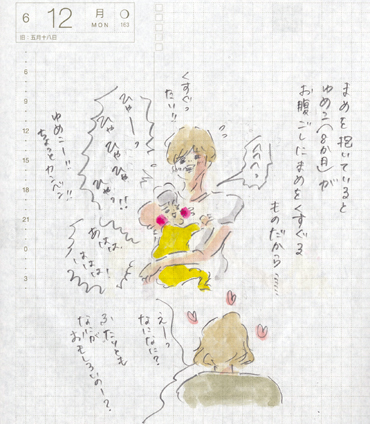 6 12 月 MON
163
旧：五月十八日
まめを抱いていると
ゆめこ(8か月)が
お腹ごしにまめをくすぐる
ものだから……
へへへっ
くすぐっ
たい!!
ひゃーっ
ひゃひゃ
ひゃっ!!
ゆめこー!!
ちょっとカンベン!!
あはは
ははは!
えーっ
なになに?
ふたりとも
なにが
おもしろいのー??
6
8
12
18
21
0
3